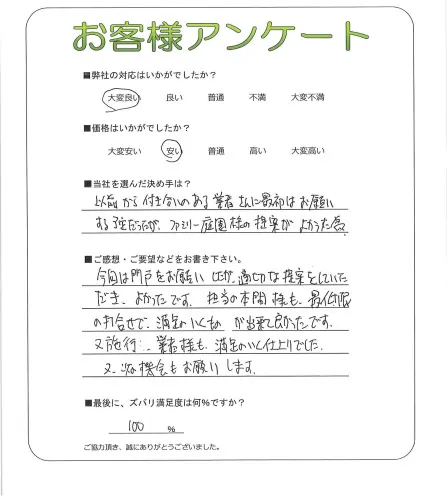 お客様アンケート
■弊社の対応はいかがでしたか?
大変良い 良い 普通 不満 大変不満
■価格はいかがでしたか?
大変安い 安い 普通 高い 大変高い
■当社を選んだ決め手は?
以前から付き合いのある業者さんに最初はお願い
する予定だったが、ファミリー庭園様の提案がよかった為
■ご感想・ご要望などをお書き下さい。
今回は門戸をお願いしたが、適切な提案をしていた
だき、よかったです。担当の本間様も、最低限
の打合せで、満足のいくものが出来て良かったです。
又施行、業者様も、満足のいく仕上りでした。
又、次の機会もお願いします。
■最後に、ズバリ満足度は何%ですか?
100 %
ご協力頂き、誠にありがとうございました。